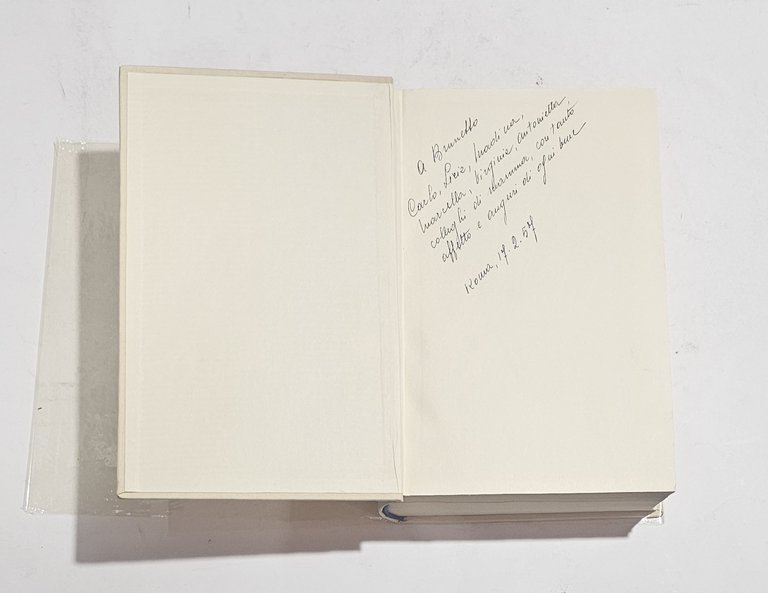 A Brunetto
Carlo, Licia, Nadina,
Marcella, Virginia, Antonietta,
colleghi di mamma, con tanto
affetto e auguri di ogni bene
Roma, 17.2.57